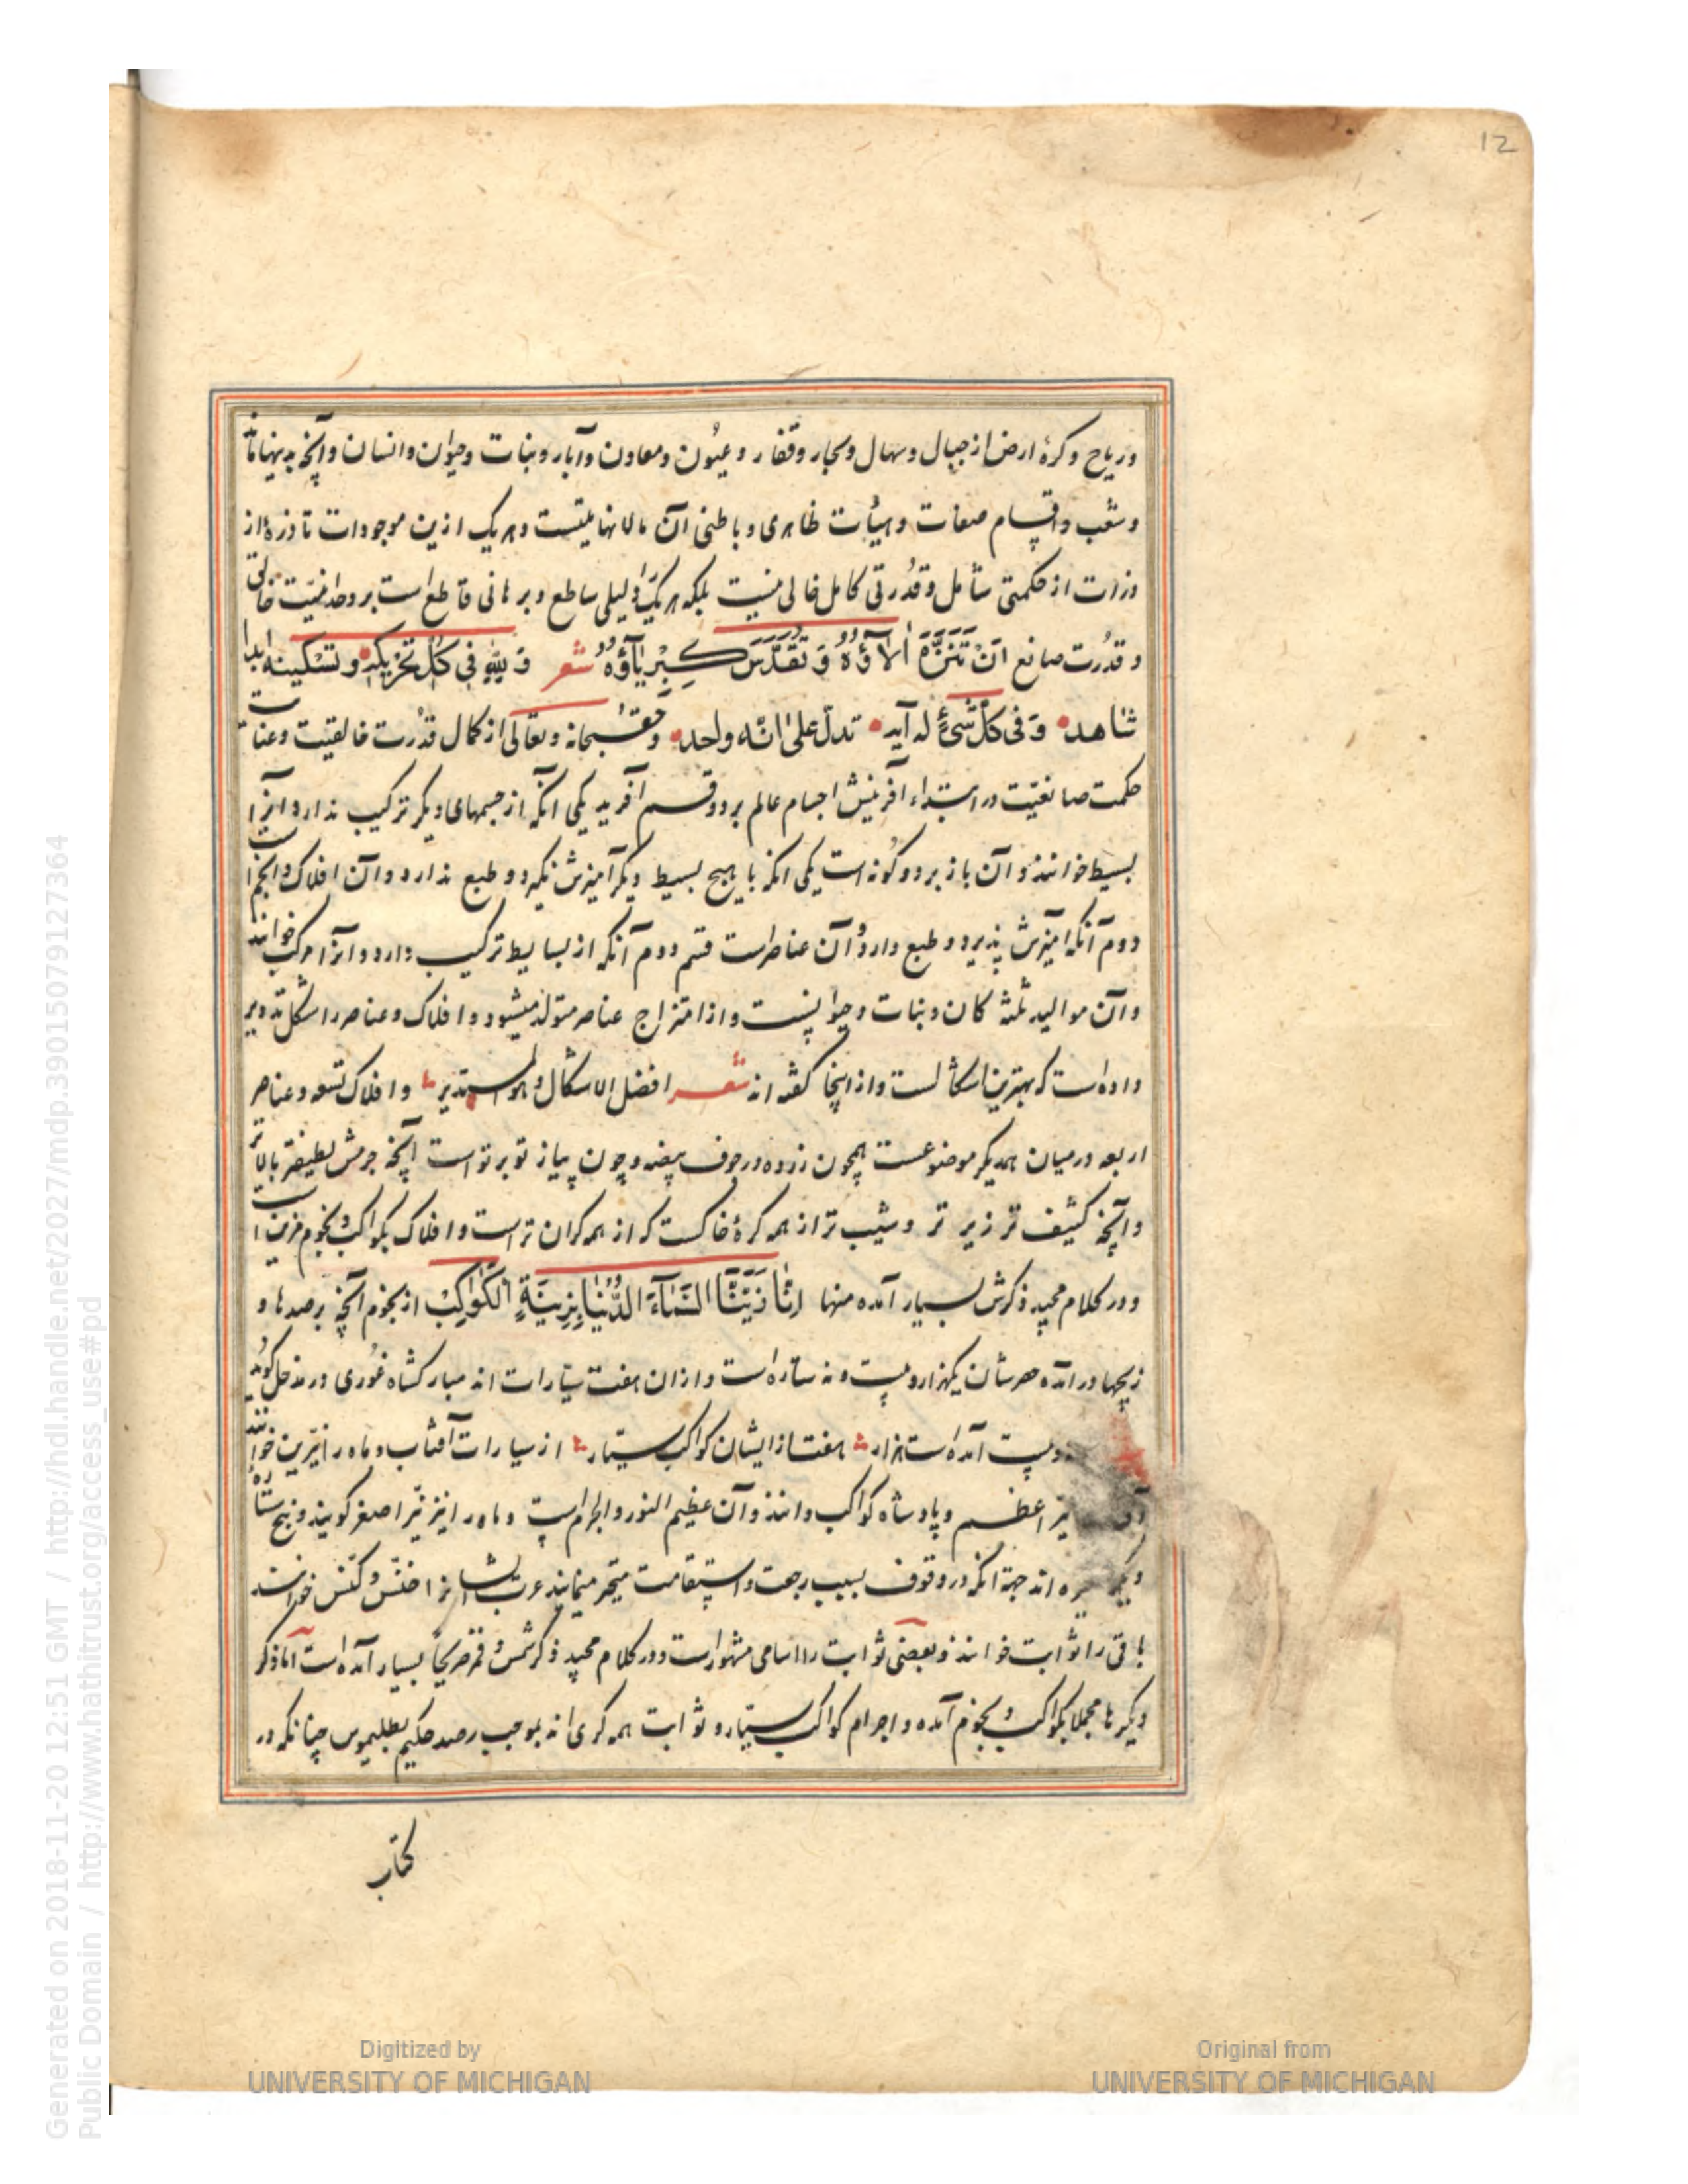 12
و ریاح و کرهٔ ارض از جبال و سهال و بحار و قفار و عیون و معادن و آبار و نبات و حیوان و انسان و آنچه بدینها ماند
و شعب و اقسام صفات و هیأت ظاهری و باطنی آن مالانهایتست و هر یک ازین موجودات تا ذرهٔ از
ذرات از حکمتی شامل و قدرتی کامل خالی نیست بلکه هر یک را دلیلی ساطع و برهانی قاطع است بر وحدانیت خالق
و قدرت صانع اَنْ تَنَزَّهَ اٰلآؤُهُ وَ تَقَدَّسَ كِبْرِيَآؤُهُ شعر وَ لِلّٰهِ فی كل تحريكه و تسكينه ابدا
شاهد وَ فی کل شیءٍ له آیه تدل علی انّه واحد و حق سبحانه و تعالی از کمال قدرت خالقیت و غایت
حکمت صانعیت در ابتداء آفرینش اجسام عالم بر دو قسم آفرید یکی آنکه از جسمهای دیگر ترکیب ندارد و آنرا
بسیط خوانند و آن باز بر دو گونه است یکی آنکه با هیچ بسیط دیگر آمیزش نگیرد و طبع ندارد و آن افلاک و انجم است
دوم آنکه آمیزش پذیرد و طبع دارد و آن عناصرست قسم دوم آنکه از بسایط ترکیب دارد و آنرا مرکب خوانند
و آن موالید ثلثه کان و نبات و حیوانست و از امتزاج عناصر متولد میشود و افلاک و عناصر را شکل تدویر
داده است که بهترین اشکالست و از اینجا گفته اند شعر افضل الاشکال و هو المستدیر و افلاک تسعه و عناصر
اربعه در میان همدیگر موضوعست همچون زرده در جوف بیضه و چون پیاز تو بر تو است آنچه جرمش لطیفتر بالاتر
و آنچه کثیف تر زیر تر و شیب تر از همه کرهٔ خاکست که از همه گران ترست و افلاک بکواکب و نجوم مزین است
و در کلام مجید ذکرش بسیار آمده منها اِنَّا زَيَّنَّا السَّمَآءَ الدُّنْيَا بِزِينَةٍ الْكَوَاكِبِ از نجوم آنچه برصدها و
زیجها در آمده حصرشان یکهزار و بیست و نه ستاره است و از ان هفت سیارات اند مبارکشاه غوری در مدخل گوید
و بیست آمده است هزار هفت از ایشان کواکب سیار از سیارات آفتاب و ماه را نیرین خوانند
نیر اعظم و پادشاه کواکب دانند و آن عظیم النور و الجرام است و ماه را نیز نیر اصغر گویند و پنج ستاره
اند جهة آنکه در وقوف بسبب رجعت و استقامت متحیر مینمایند عرب ایشانرا خنّس و کنّس خوانند
باقی را ثوابت خوانند و بعضی ثوابت را اسامی مشهورست و در کلام مجید ذکر شمس و قمر صریحا بسیار آمده است اما ذکر
دیگرها مجملا بکواکب و نجوم آمده و اجرام کواکب سیار و ثوابت همه کری اند بموجب رصد حکیم بطلیموس چنانکه در
کتاب
Digitized by
UNIVERSITY OF MICHIGAN
Original from
UNIVERSITY OF MICHIGAN
Generated on 2018-11-20 12:51 GMT / http://hdl.handle.net/2027/mdp.39015079127364
Public Domain / http://www.hathitrust.org/access_use#pd